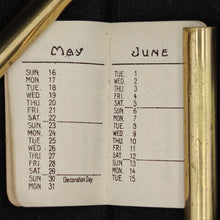 MAY
SUN. 16
MON. 17
TUE. 18
WED. 19
THU. 20
FRI. 21
SAT. 22
SUN. 23
MON. 24
TUE. 25
WED. 26
THU. 27
FRI. 28
SAT. 29
SUN. 30 Decoration Day
MON. 31
JUNE
TUE. 1
WED. 2
THU. 3
FRI. 4
SAT. 5
SUN. 6
MON. 7
TUE. 8
WED. 9
THU. 10
FRI. 11
SAT. 12
SUN. 13
MON. 14
TUE. 15